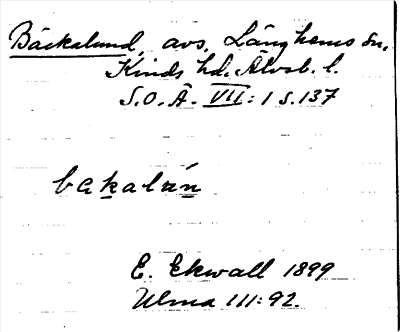 Bäckalund, avs. Länghems sn,
Kinds hd. Älvsb. l.
S.O.Ä. VII:1 s.137
E. Ekwall 1899
Ulma 111:92.